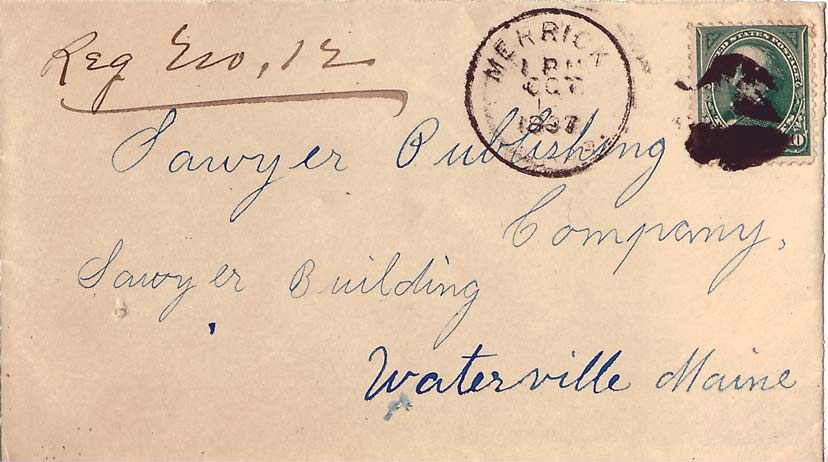 Reg No, 12
MERRICK
1 PM
OCT
1897
UNITED STATES POSTAGE
10
Sawyer Publishing
Company,
Sawyer Building
Waterville Maine